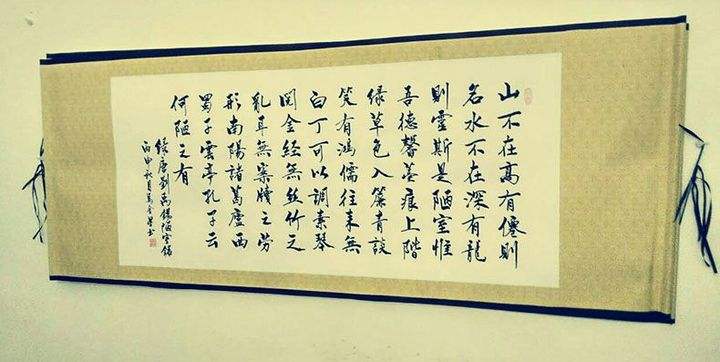 山不在高有僊則
名水不在深有龍
則靈斯是陋室惟
吾德馨苔痕上階
緑草色入簾青談
笑有鴻儒往来無
白丁可以調素琴
閲金經無丝竹之
亂耳無案牘之劳
形南陽諸葛廬西
蜀子雲亭孔子云
何陋之有
録唐劉禹錫陋室銘
丙申秋月書